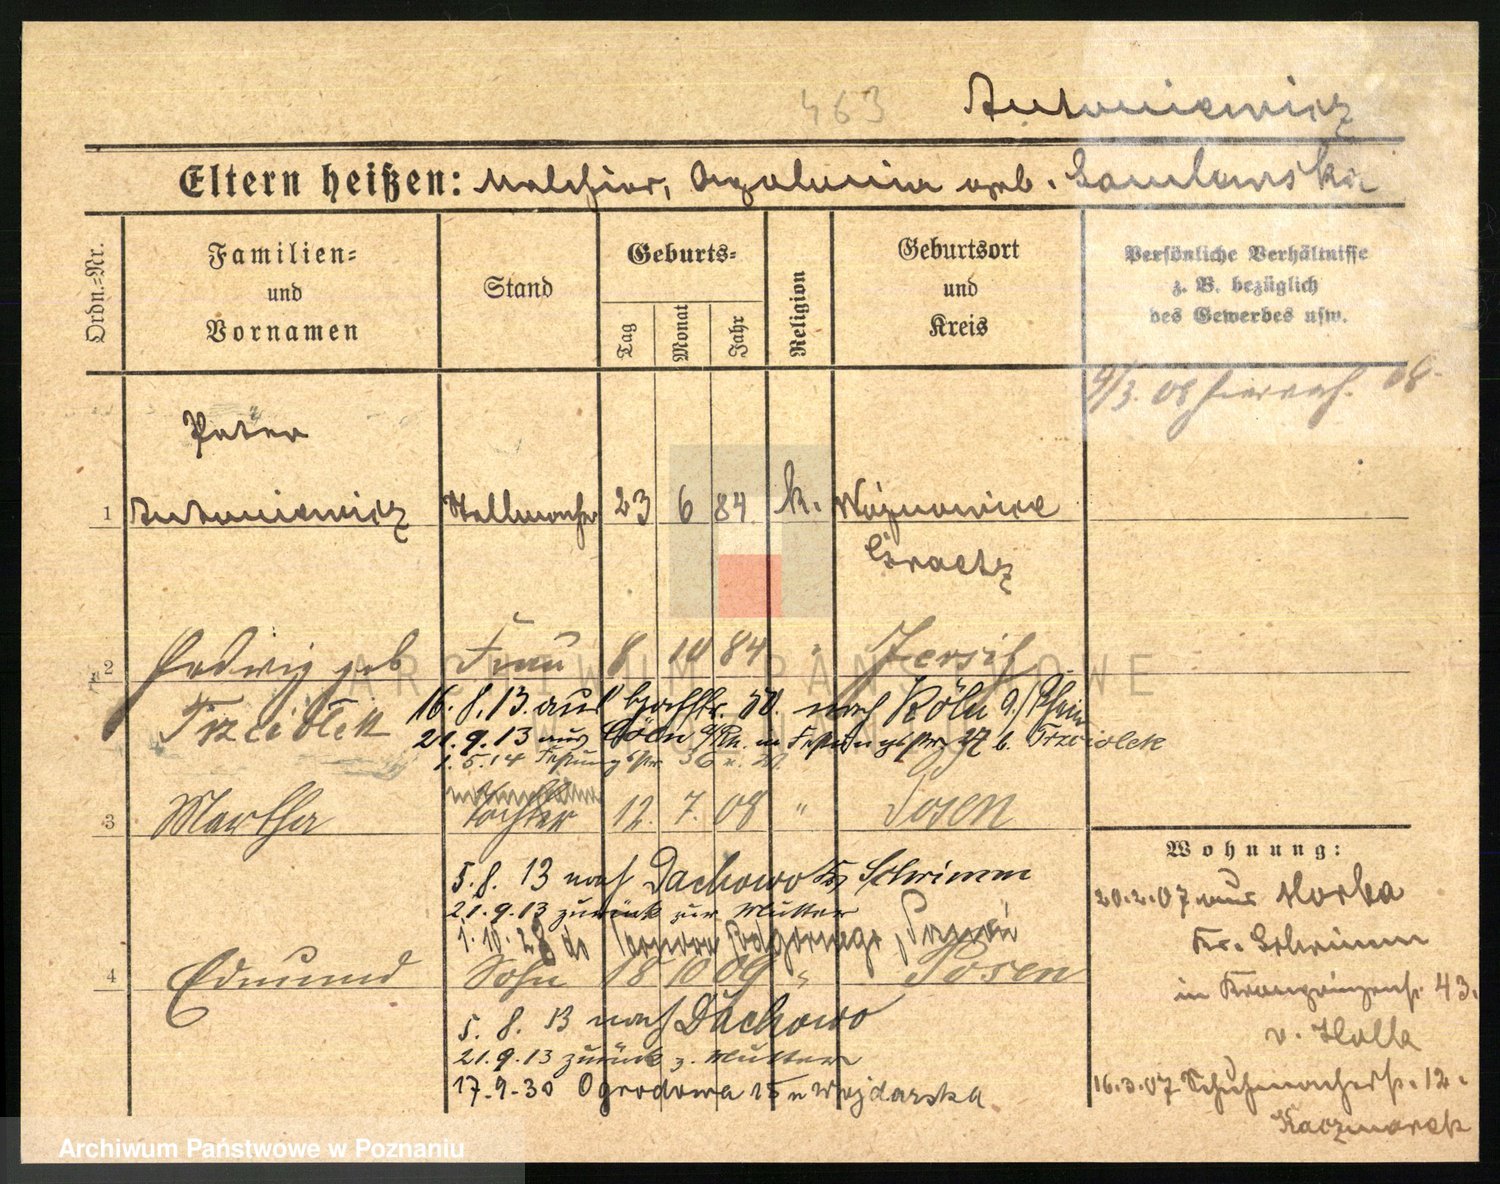 463 Antoniewicz
Eltern heißen: Melchior, Apolonia geb.
Ordn.-Nr.
Familien- und Vornamen
Stand
Geburts-
Tag Monat Jahr
Religion
Geburtsort und Kreis
Persönliche Verhältnisse z. B. bezüglich des Gewerbes usw.
9/3. 08
Peter
1 Antoniewicz Stellmacher 23 6 84 k. Woznowice
Graetz
2 Hedwig geb Frau 8 10 84 " Jersitz
Trzciolek
16.8.13. aus 20. nach Köln a/Rhein
21.9.13 aus Cöln a/Rh. in Festungsstr. 27 b. Trzciolek
1.5.14 Festungsstr. 36
3 Martha Tochter 12. 7. 08 " Posen
5.8.13 nach Dachowo Kr. Schrimm
21.9.13 zurück zur Mutter
1.10.28 do
4 Edmund Sohn 18 10 09 " Posen
5. 8. 13 nach Dachowo
21.9.13 zurück z. Mutter
17.9.30 Ogrodowa 15 u Wojdarska
Wohnung:
20.2.07 aus Morka
Kr. Schrimm
in Kronprinzenstr. 43.
v. Holla
16.3.07 Schuhmacherstr. 12.
Kaczmarek
ARCHIWUM PAŃSTWOWE
W POZNANIU
Archiwum Państwowe w Poznaniu